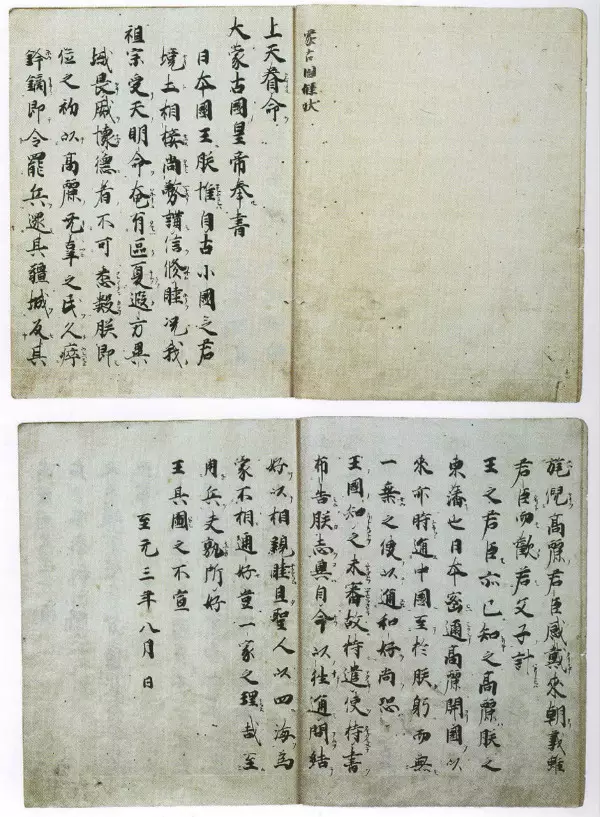 蒙古国牒状
上天眷命
大蒙古國皇帝奉書
日本國王朕惟自古小國之君
境土相接尚務講信修睦况我
祖宗受天明命奄有區夏遐方異
域畏威懷德者不可悉數朕即
位之初以高麗无辜之民久瘁
鋒鏑即令罷兵還其疆域反其
旄倪高麗君臣感戴來朝義雖
君臣而歡若父子計
王之君臣亦已知之高麗朕之
東藩也日本密迩高麗開國以
來亦時通中國至於朕躬而無
一乘之使以通和好尚恐
王國知之未審故特遣使持書
布告朕志冀自今以往通問結
好以相親睦且聖人以四海為
家不相通好豈一家之理哉至
用兵夫孰所好
王其圖之不宣
至元三年八月 日